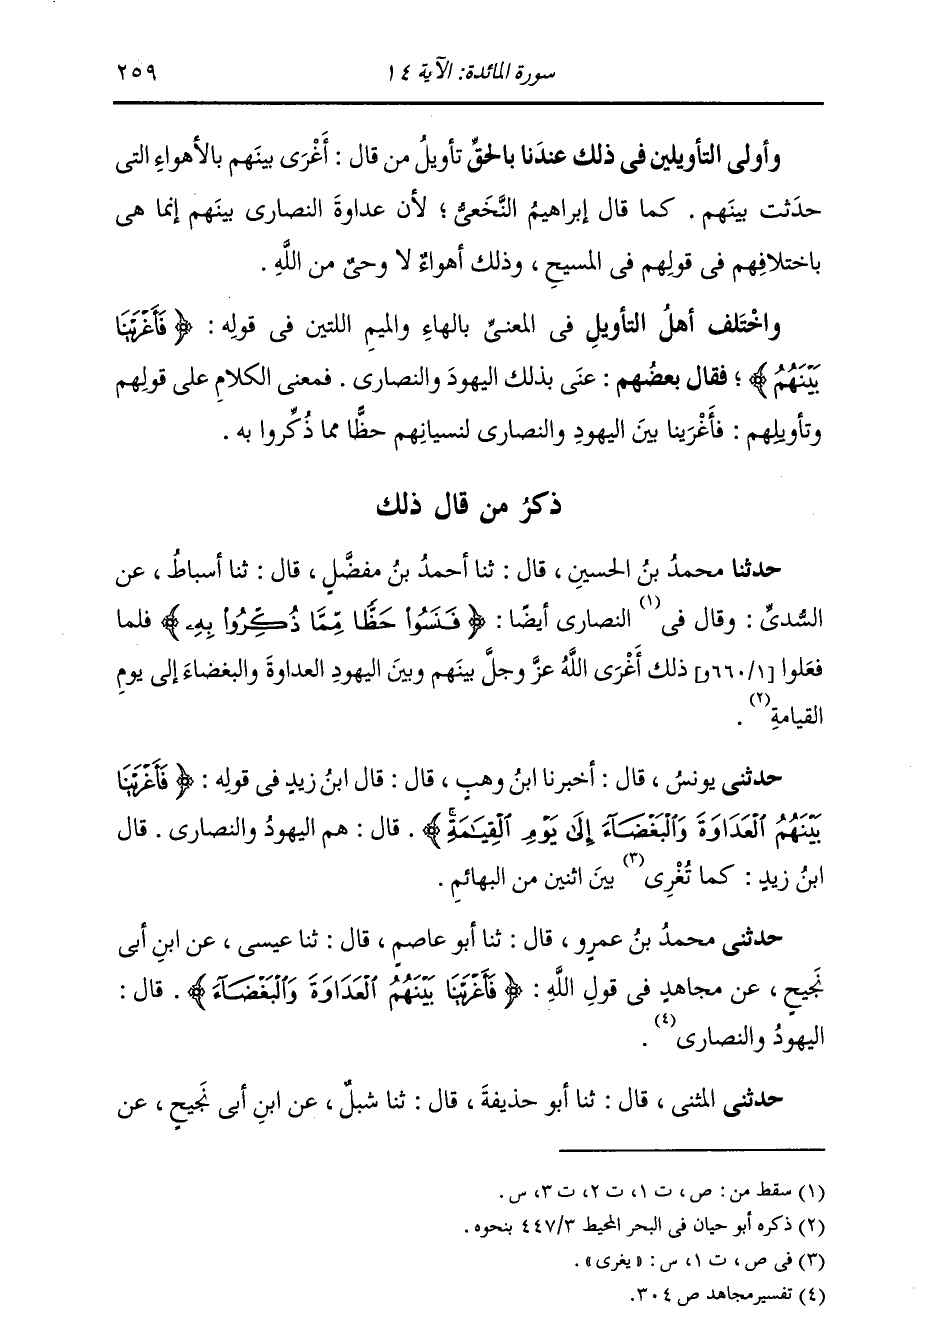 سورة المائدة: الآية ١٤ ٢٥٩
وأولى التأويلين فى ذلك عندَنا بالحقِّ تأويلُ من قال : أَغْرَى بينَهم بالأهواءِ التى
حدَثت بينَهم . كما قال إبراهيمُ النَّخَعىُّ ؛ لأن عداوةَ النصارى بينَهم إنما هى
باختلافِهم فى قولِهم فى المسيحِ ، وذلك أهواءٌ لا وحىٌ من اللَّهِ .
واخْتَلف أهلُ التأويلِ فى المعنىِّ بالهاءِ والميمِ اللتين فى قولِه : ﴿ فَأَغْرَيْنَا
بَيْنَهُمُ ﴾ ؛ فقال بعضُهم : عنَى بذلك اليهودَ والنصارى . فمعنى الكلامِ على قولِهم
وتأويلِهم : فأَغْرَينا بينَ اليهودِ والنصارى لنسيانِهم حظًّا مما ذُكِّروا به .
ذكرُ من قال ذلك
حدثنا محمدُ بنُ الحسينِ ، قال : ثنا أحمدُ بنُ مفضَّلٍ ، قال : ثنا أسباطُ ، عن
السُّدىِّ : وقال فى(١) النصارى أيضًا : ﴿ فَنَسُوا۟ حَظًّا مِّمَّا ذُكِّرُوا۟ بِهِۦ ﴾ فلما
فعَلوا [١/٦٦٠و] ذلك أَغْرَى اللَّهُ عزَّ وجلَّ بينَهم وبينَ اليهودِ العداوةَ والبغضاءَ إلى يومِ
القيامةِ(٢) .
حدثنى يونسُ ، قال : أخبرنا ابنُ وهبٍ ، قال : قال ابنُ زيدٍ فى قولِه : ﴿ فَأَغْرَيْنَا
بَيْنَهُمُ ٱلْعَدَاوَةَ وَٱلْبَغْضَآءَ إِلَىٰ يَوْمِ ٱلْقِيَـٰمَةِۚ ﴾ . قال : هم اليهودُ والنصارى . قال
ابنُ زيدٍ : كما تُغْرِى(٣) بينَ اثنين من البهائمِ .
حدثنى محمدُ بنُ عمرٍو ، قال : ثنا أبو عاصمٍ ، قال : ثنا عيسى ، عن ابنِ أبى
نَجيحٍ ، عن مجاهدٍ فى قولِ اللَّهِ : ﴿ فَأَغْرَيْنَا بَيْنَهُمُ ٱلْعَدَاوَةَ وَٱلْبَغْضَآءَ ﴾ . قال :
اليهودُ والنصارى(٤) .
حدثنى المثنى ، قال : ثنا أبو حذيفةَ ، قال : ثنا شبلٌ ، عن ابنِ أبى نَجيحٍ ، عن
(١) سقط من : ص ، ت ١، ت ٢، ت ٣، س .
(٢) ذكره أبو حيان فى البحر المحيط ٤٤٧/٣ بنحوه .
(٣) فى ص ، ت ١، س : « يغرى » .
(٤) تفسير مجاهد ص ٣٠٤.